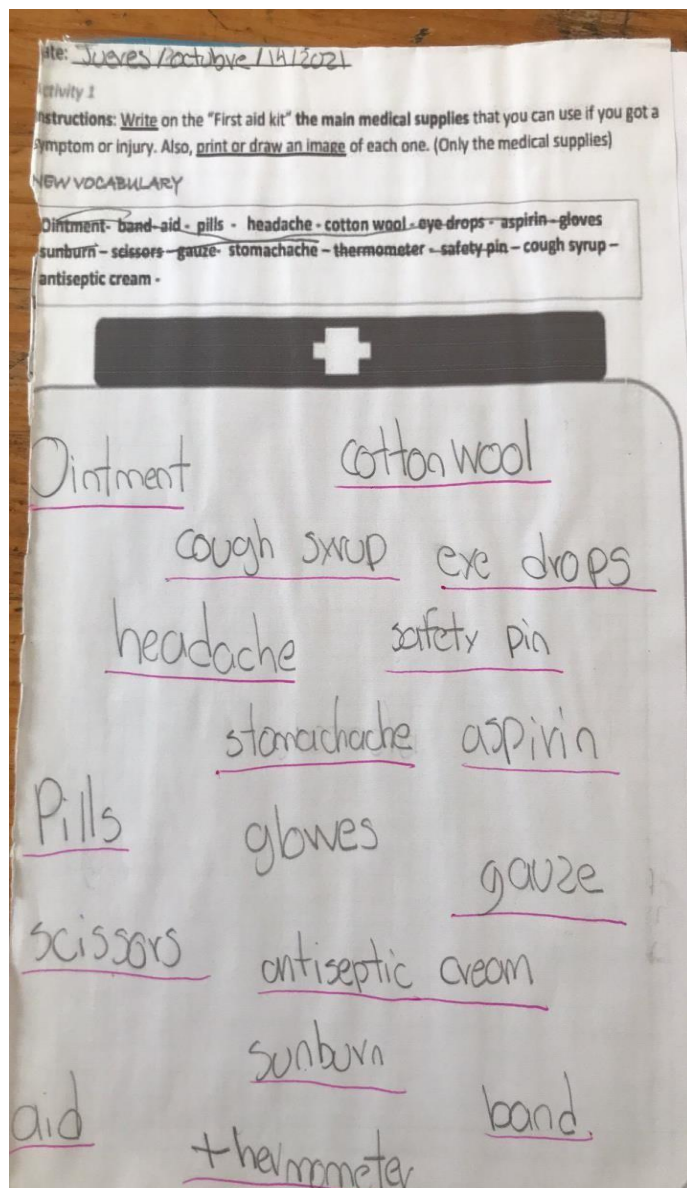 ate: Jueves / octubre / 14 / 2021
ctivity 1
nstructions: Write on the "First aid kit" the main medical supplies that you can use if you got a
symptom or injury. Also, print or draw an image of each one. (Only the medical supplies)
NEW VOCABULARY
Ointment- band-aid - pills - headache - cotton wool - eye drops - aspirin - gloves
sunburn – scissors – gauze- stomachache – thermometer - safety pin – cough syrup –
antiseptic cream -
Ointment cotton wool
cough swup eye drops
headache safety pin
stomachache aspirin
Pills glowes
gauze
scissors
antiseptic cream
sunburn
aid band.
thermometer